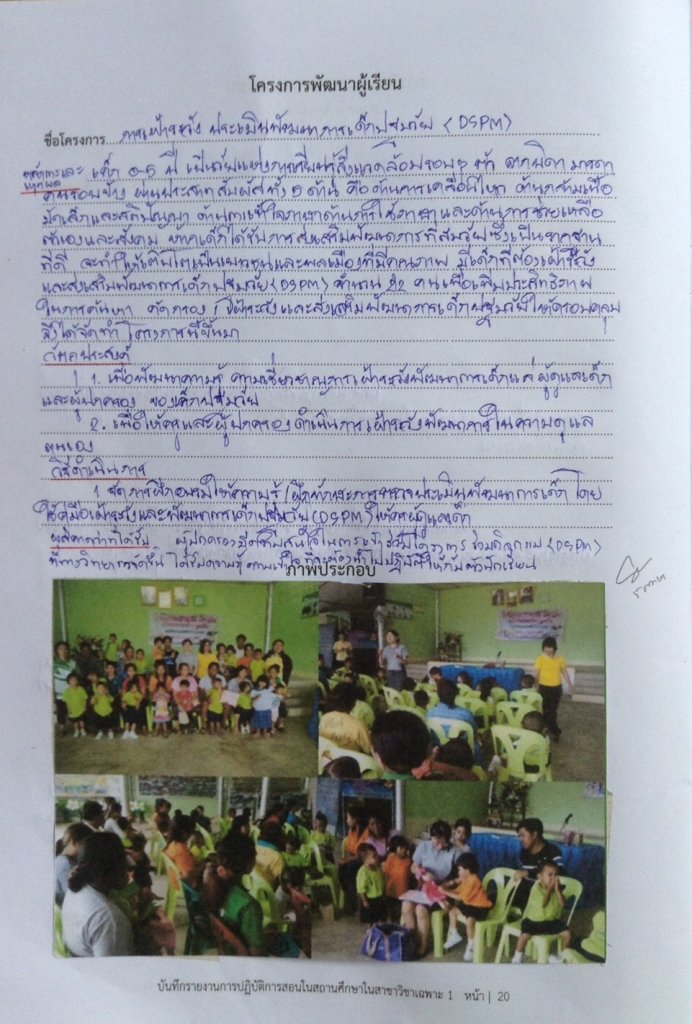 โครงการพัฒนาผู้เรียน
ชื่อโครงการ การเฝ้าระวัง ประเมินพัฒนาการเด็กปฐมวัย (DSPM)
หลักการและ เด็ก 0-5 ปี เป็นวัยแห่งการเรียนรู้สิ่งแวดล้อมรอบๆ ตัว จากบิดา มารดา
เหตุผล
คนรอบข้าง ผ่านประสาทสัมผัสทั้ง 5 ด้าน คือด้านการเคลื่อนไหว ด้านกล้ามเนื้อ
มัดเล็กและสติปัญญา ด้านการเข้าใจภาษาด้านการใช้ภาษา และด้านการช่วยเหลือ
ตัวเองและสังคม หากเด็กได้รับการส่งเสริมพัฒนาการที่สมวัยซึ่งเป็นรากฐาน
ที่ดี จะทำให้เติบโตเป็นเยาวชนและพลเมืองที่มีคุณภาพ มีเด็กที่ต้องเฝ้าระวัง
และส่งเสริมพัฒนาการเด็กปฐมวัย (DSPM) จำนวน คนเพื่อเพิ่มประสิทธิภาพ
ในการค้นหา คัดกรอง เฝ้าระวังและส่งเสริมพัฒนาการเด็กปฐมวัยให้ครอบคลุม
จึงได้จัดทำ โครงการนี้ขึ้นมา
วัตถุประสงค์
1. เพื่อพัฒนาความรู้ ความเชี่ยวชาญการเฝ้าระวังพัฒนาการเด็กแก่ ผู้ดูแลเด็ก
และผู้ปกครอง ของเด็กปฐมวัย
2. เพื่อให้ครูและผู้ปกครองดำเนินการเฝ้าระวังพัฒนาการในความดูแล
ตนเอง
วิธีดำเนินการ
1 จัดการฝึกอบรมให้ความรู้/ฝึกทักษะการตรวจประเมินพัฒนาการเด็ก โดย
ใช้คู่มือเฝ้าระวังและพัฒนาการเด็กปฐมวัย (DSPM) ให้ครูผู้ดูแลเด็ก
ผลที่ได้รับ ผู้ปกครองมีความสนใจในการเข้าร่วมโครงการ ร่วมกิจกรรม (DSPM)
ที่ทางวิทยากรจัดขึ้น ได้รับความรู้ความเข้าใจ ที่จะต้องนำไปปฏิบัติให้กับตัวนักเรียน
ภาพประกอบ
บันทึกรายงานการปฏิบัติการสอนในสถานศึกษาในสาขาวิชาเฉพาะ 1 หน้า | 20